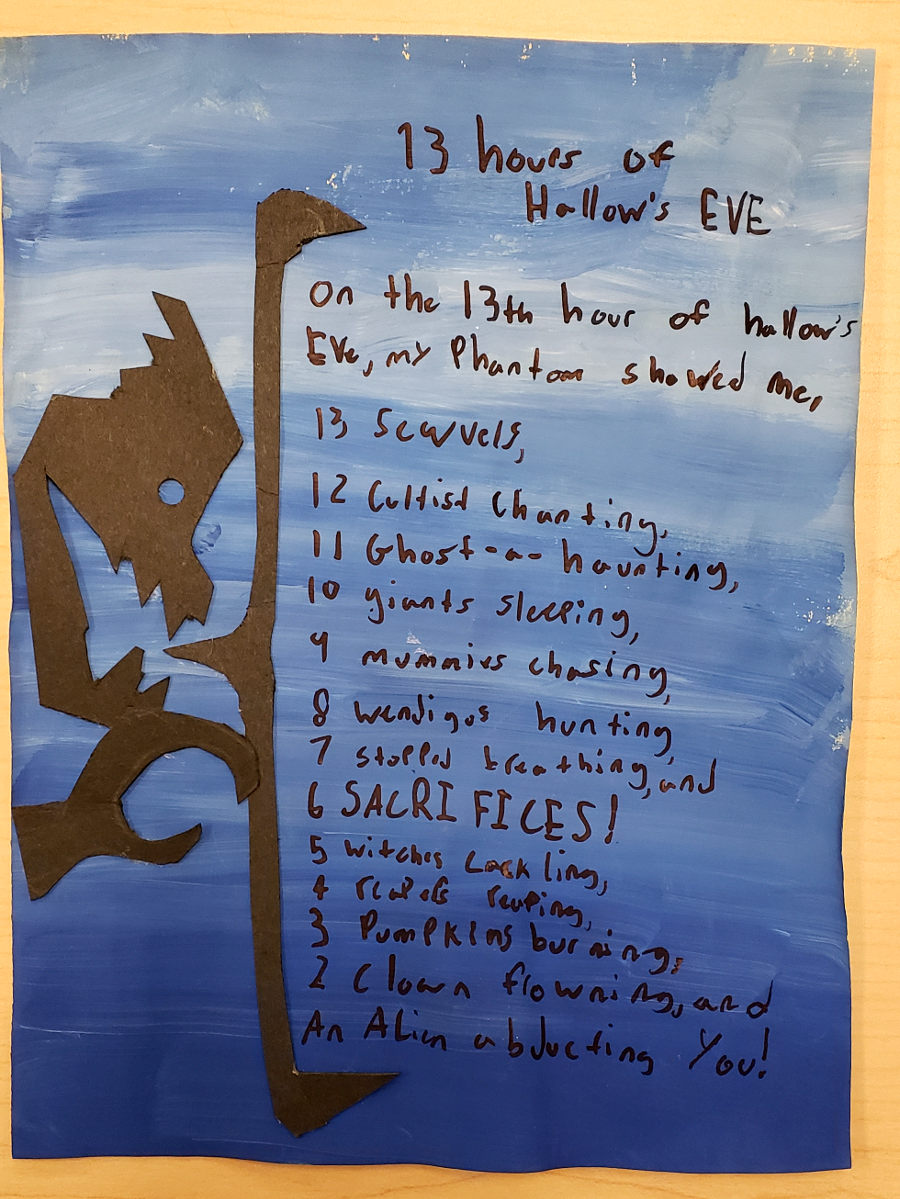 13 hours of
Hallow's EVE
On the 13th hour of hallow's
Eve, my Phantom showed me,
13
12 Cultist Chanting,
11 Ghost-a-haunting,
10 giants sleeping,
9 mummies chasing,
8 wendigos hunting,
7 stopped breathing, and
6 SACRIFICES!
5 witches cackling,
4 reapers reaping,
3 Pumpkins burning,
2 Clown frowning, and
An Alien abducting You!